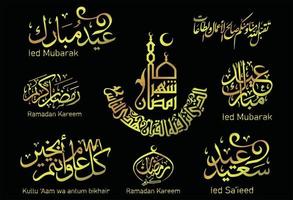 عيد مبارك
Ied Mubarak
تقبل الله منا ومنكم صالح الأعمال والطاعات
شهر رمضان الذي أنزل فيه القرآن هدى للناس
رمضان كريم
Ramadan Kareem
عيد مبارك
Ied Mubarak
كل عام وأنتم بخير
Kullu 'Aam wa antum bikhair
رمضان كريم
Ramadan Kareem
عيد سعيد
Ied Sa'ieed